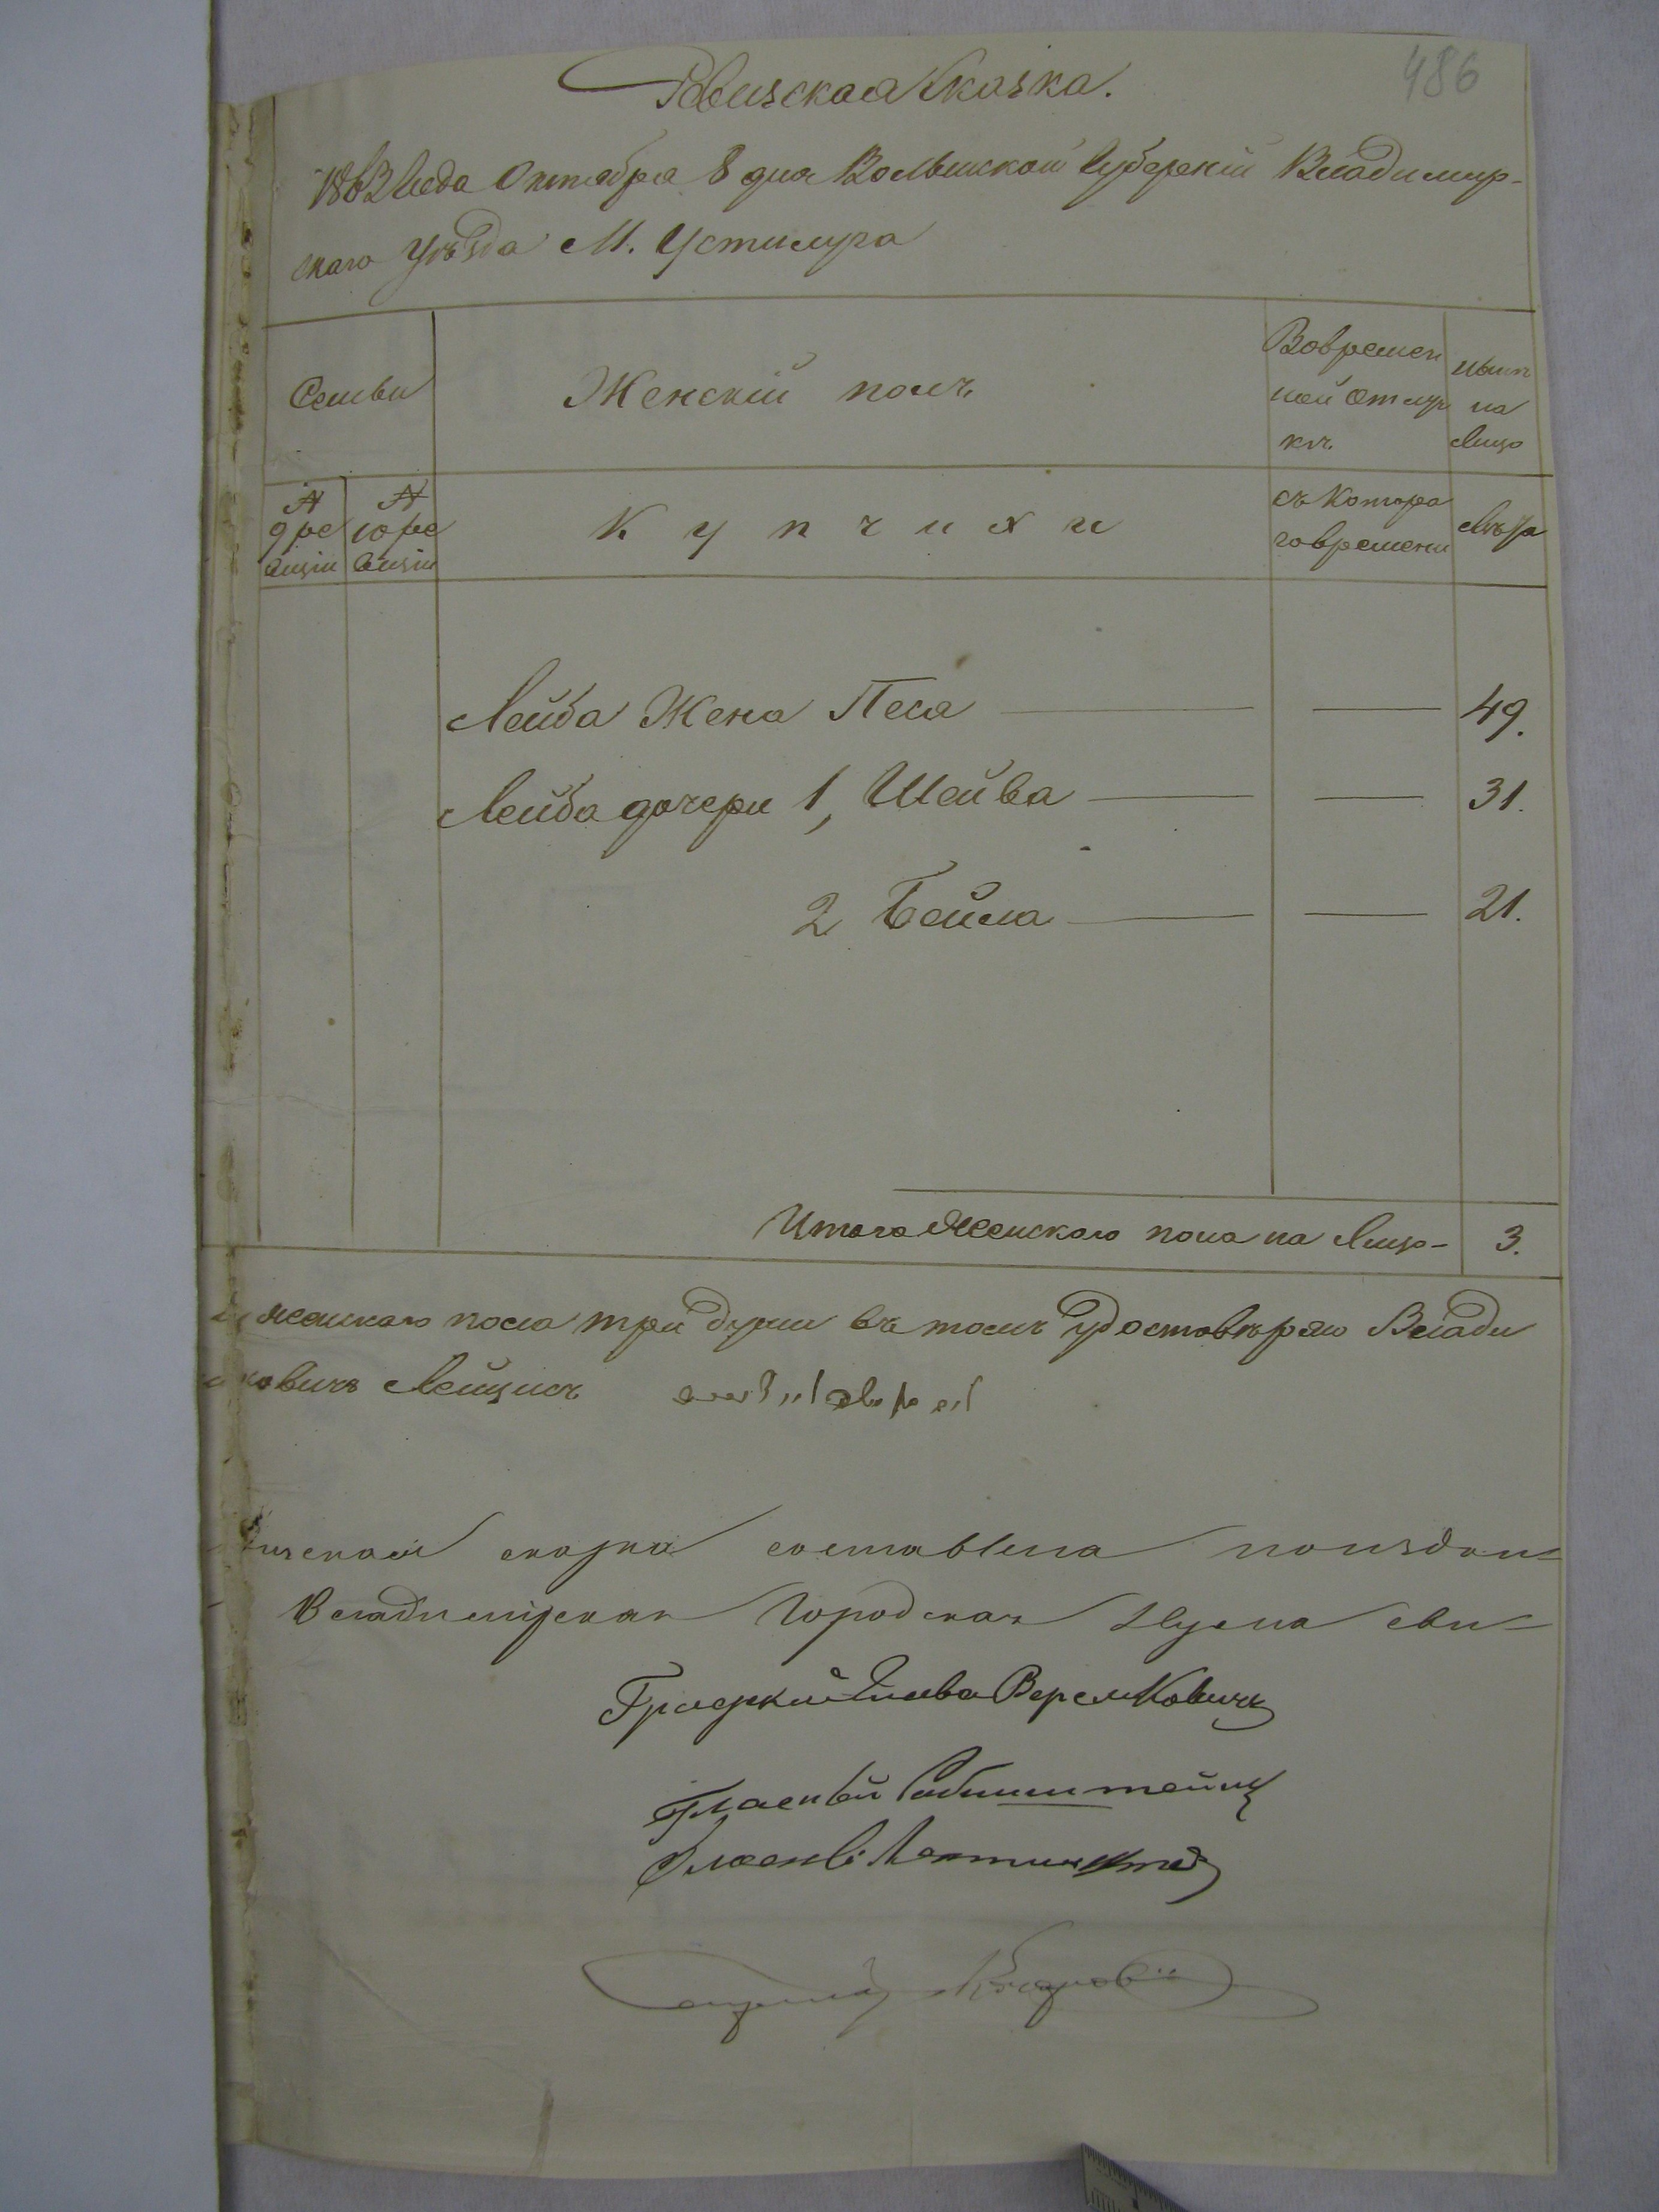 486
Ревизская Сказка.
1862 Года Октября 8 дня Волынской Губерніи Владимир-
скаго Уѣзда М. Устилуга
Семьи
Женскій полъ
Вовремен
ной отлуч
кѣ.
нынѣ
на
Лицо
№
9 ре
визіи
№
10 ре
визіи
Купчихи
съ Котора
говремени
Лѣта
Лейба Жена Песа 49.
Лейба дочери 1, Шейва 31.
2 Бейла 21.
Итого Женскаго пола на Лицо- 3.
женскаго пола три души въ томъ удостовѣряю Влади
ковичъ Лейцисъ
сказка составлена
Владимірская Городская Дума сви=
Градскій Глава
Гласный
Гласный